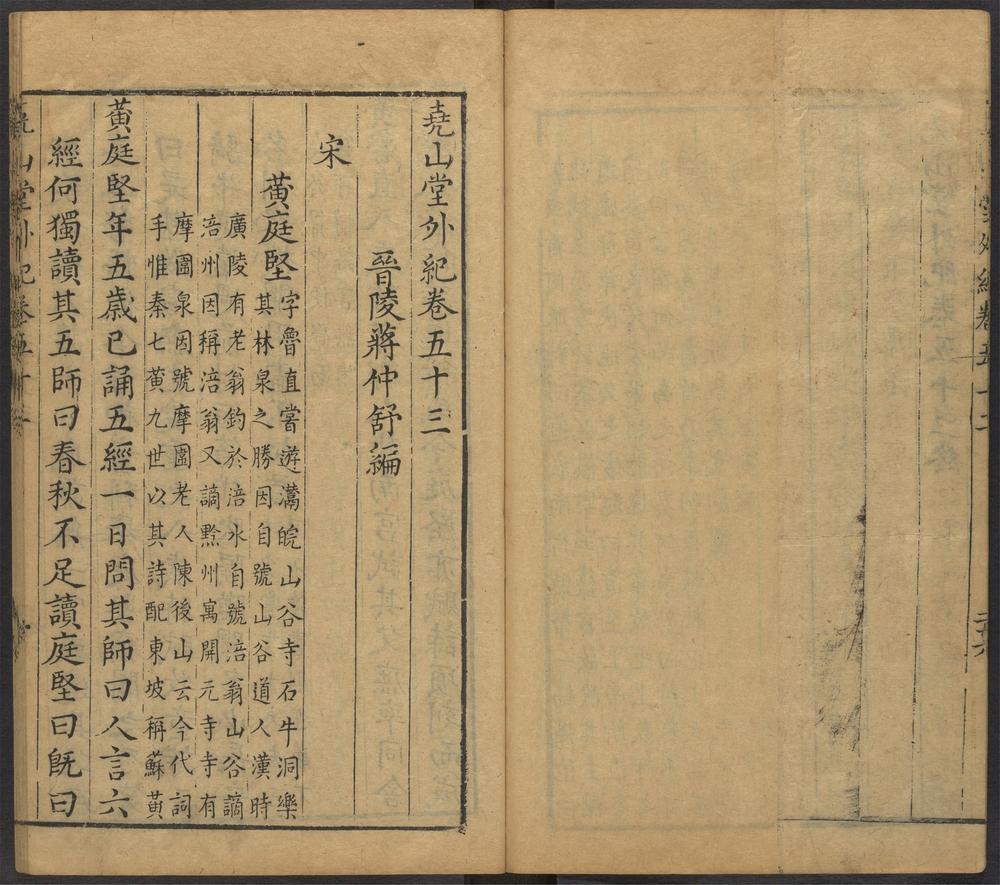 堂外紀卷五十二
堯山堂外紀卷五十三
晉陵蔣仲舒編
宋
黃庭堅
字魯直嘗遊灊皖山谷寺石牛洞樂
其林泉之勝因自號山谷道人漢時
廣陵有老翁釣於涪水自號涪翁山谷謫
涪州因稱涪翁又謫黔州寓開元寺寺有
摩圍泉因號摩圍老人陳後山云今代詞
手惟秦七黃九世以其詩配東坡稱蘇黃
黃庭堅年五歲已誦五經一日問其師曰人言六
經何獨讀其五師曰春秋不足讀庭堅曰旣曰